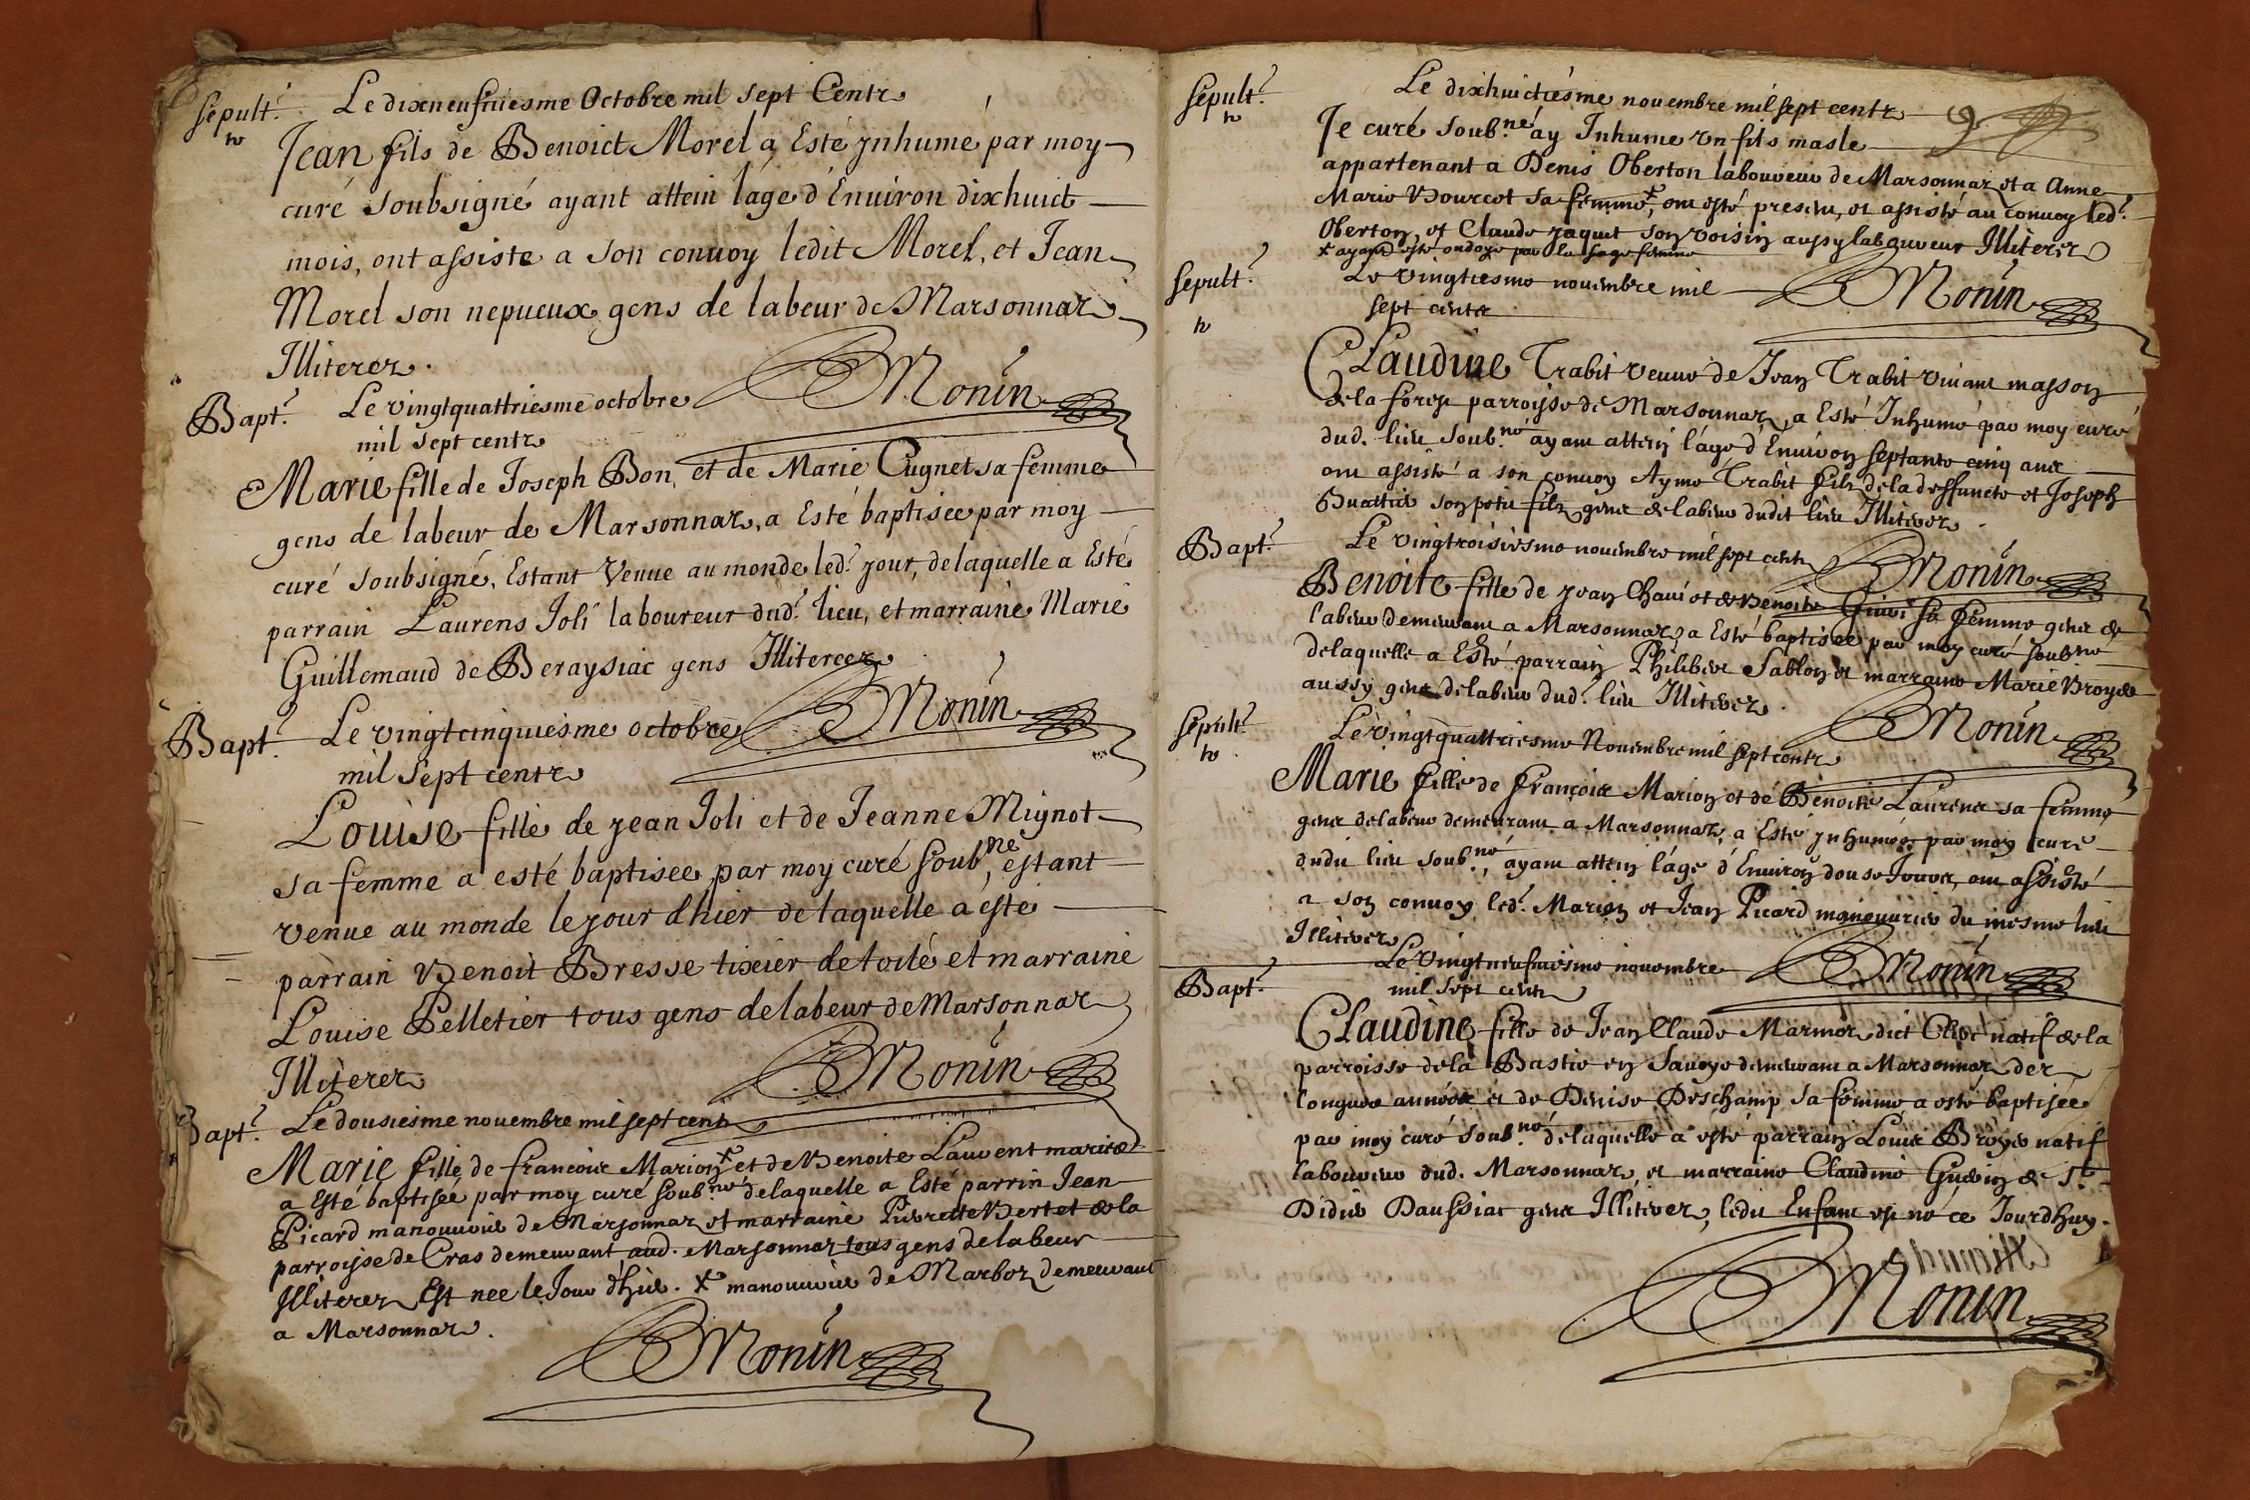 Sepult.
Le dixneufuiesme Octobre mil sept Centz
Jean fils de Benoict Morel a Esté ynhumé par moy
curé soubsigné ayant attein l'age d'Enuiron dixhuict
mois, ont assiste a son conuoy ledit Morel, et Jean
Morel son nepueux gens de labeur de Marsonnaz
Illiterez.
Monin
Bapt.
Le vingtquattriesme octobre
mil sept centz
Marie fille de Joseph Bon, et de Marie Cugnet sa femme
gens de labeur de Marsonnaz, a Esté baptisée par moy
curé soubsigné, Estant Venue au monde led. jour, de laquelle a Esté
parrain Laurens Joli laboureur dud. lieu, et marraine Marie
Guillemaud de Beraysiac gens Illiterez
Monin
Bapt.
Le vingtcinquiesme octobre
mil sept centz
Louise fille de jean Joli et de Jeanne Mignot
sa femme a esté baptisee par moy curé soub.né, estant
venue au monde le jour d'hier de laquelle a este
parrain Benoit Bresse tixier de toile et marraine
Louise Pelletier tous gens de labeur de Marsonnaz
Illiterez
Monin
Bapt.
Le dousiesme nouembre mil sept cents
Marie fille de francoise Marion x et de Benoite Laurent mariez
a Esté baptisée par moy curé soub.né de laquelle a Esté parrin Jean
Picard manouurier de Marsonnaz et marraine Pierrette Bertet de la
parroisse de Cras demeurant aud. Marsonnaz tous gens de labeur
Illiterez Est nee le Jour d'hier. x manouurier de Marboz demeurant
a Marsonnaz.
Monin
Sepult.
Le dixhuictiesme nouembre mil sept centz
Je curé soub.né ay Inhume vn fils masle
appartenant a Denis Oberton laboureur de Marsonnaz et a Anne
Marie Bourcet sa femme x, ont esté present, et assisté au conuoy led.
Oberton, et Claude jaquet son voisin aussy laboureur Illiterez
x ayant esté ondoyé par la sage femme
Monin
Sepult.
Le vingtiesme nouembre mil
sept centz
Claudine Trabit veuue de Jean Trabit viuant masson
de la forest parroisse de Marsonnaz, a Esté Inhumé par moy curé
dud. lieu soub.né ayant attein l'age d'Enuiron septante cinq ans
ont assisté a son conuoy Aymé Trabit fils de la deffuncte et Joseph
son petit fils gens de labeur dudit lieu Illiterez
Monin
Bapt.
Le vingtroisiesme nouembre mil sept cents
Benoite fille de jean Chauiot et de Benoite Guiui sa femme gens de
labeur demeurant a Marsonnaz, a Esté baptisée par moy curé soub.né
de laquelle a Esté parrain Philibert Sablon et marraine Marie Broyde
aussy gens de labeur dud. lieu Illiterez.
Monin
Sepult.
Le vingtquattriesme Nouembre mil sept centz
Marie fille de françois Marion et de Benoite Laurens sa femme
gens de labeur demeurant a Marsonnaz, a Esté ynhumée par moy curé
dudit lieu soub.né, ayant attein l'age d'Enuiron douse Jours, ont assisté
a son conuoy led. Marion et Jean Picard manouurier du mesme lieu
Illiterez
Monin
Bapt.
Le vingtneufuiesme nouembre
mil sept cents
Claudine fille de Jean Claude Marmor dict natif de la
parroisse de la Bastie en Sauoye demeurant a Marsonnaz dez
longues années et de Denise Deschamp sa femme a esté baptisée
par moy curé soub.né de laquelle a esté parrain Louis Broye natif
laboureur dud. Marsonnaz, et marraine Claudine Gudin de St.
Didier Daussiac gens Illiterez, ledit Enfant est né ce Jourdhuy.
Monin